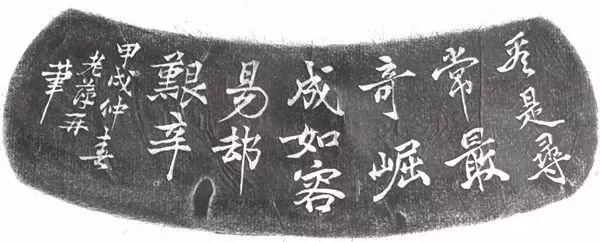 看是尋
常最
奇崛
成如容
易却
艱辛
甲戌仲春
老
筆